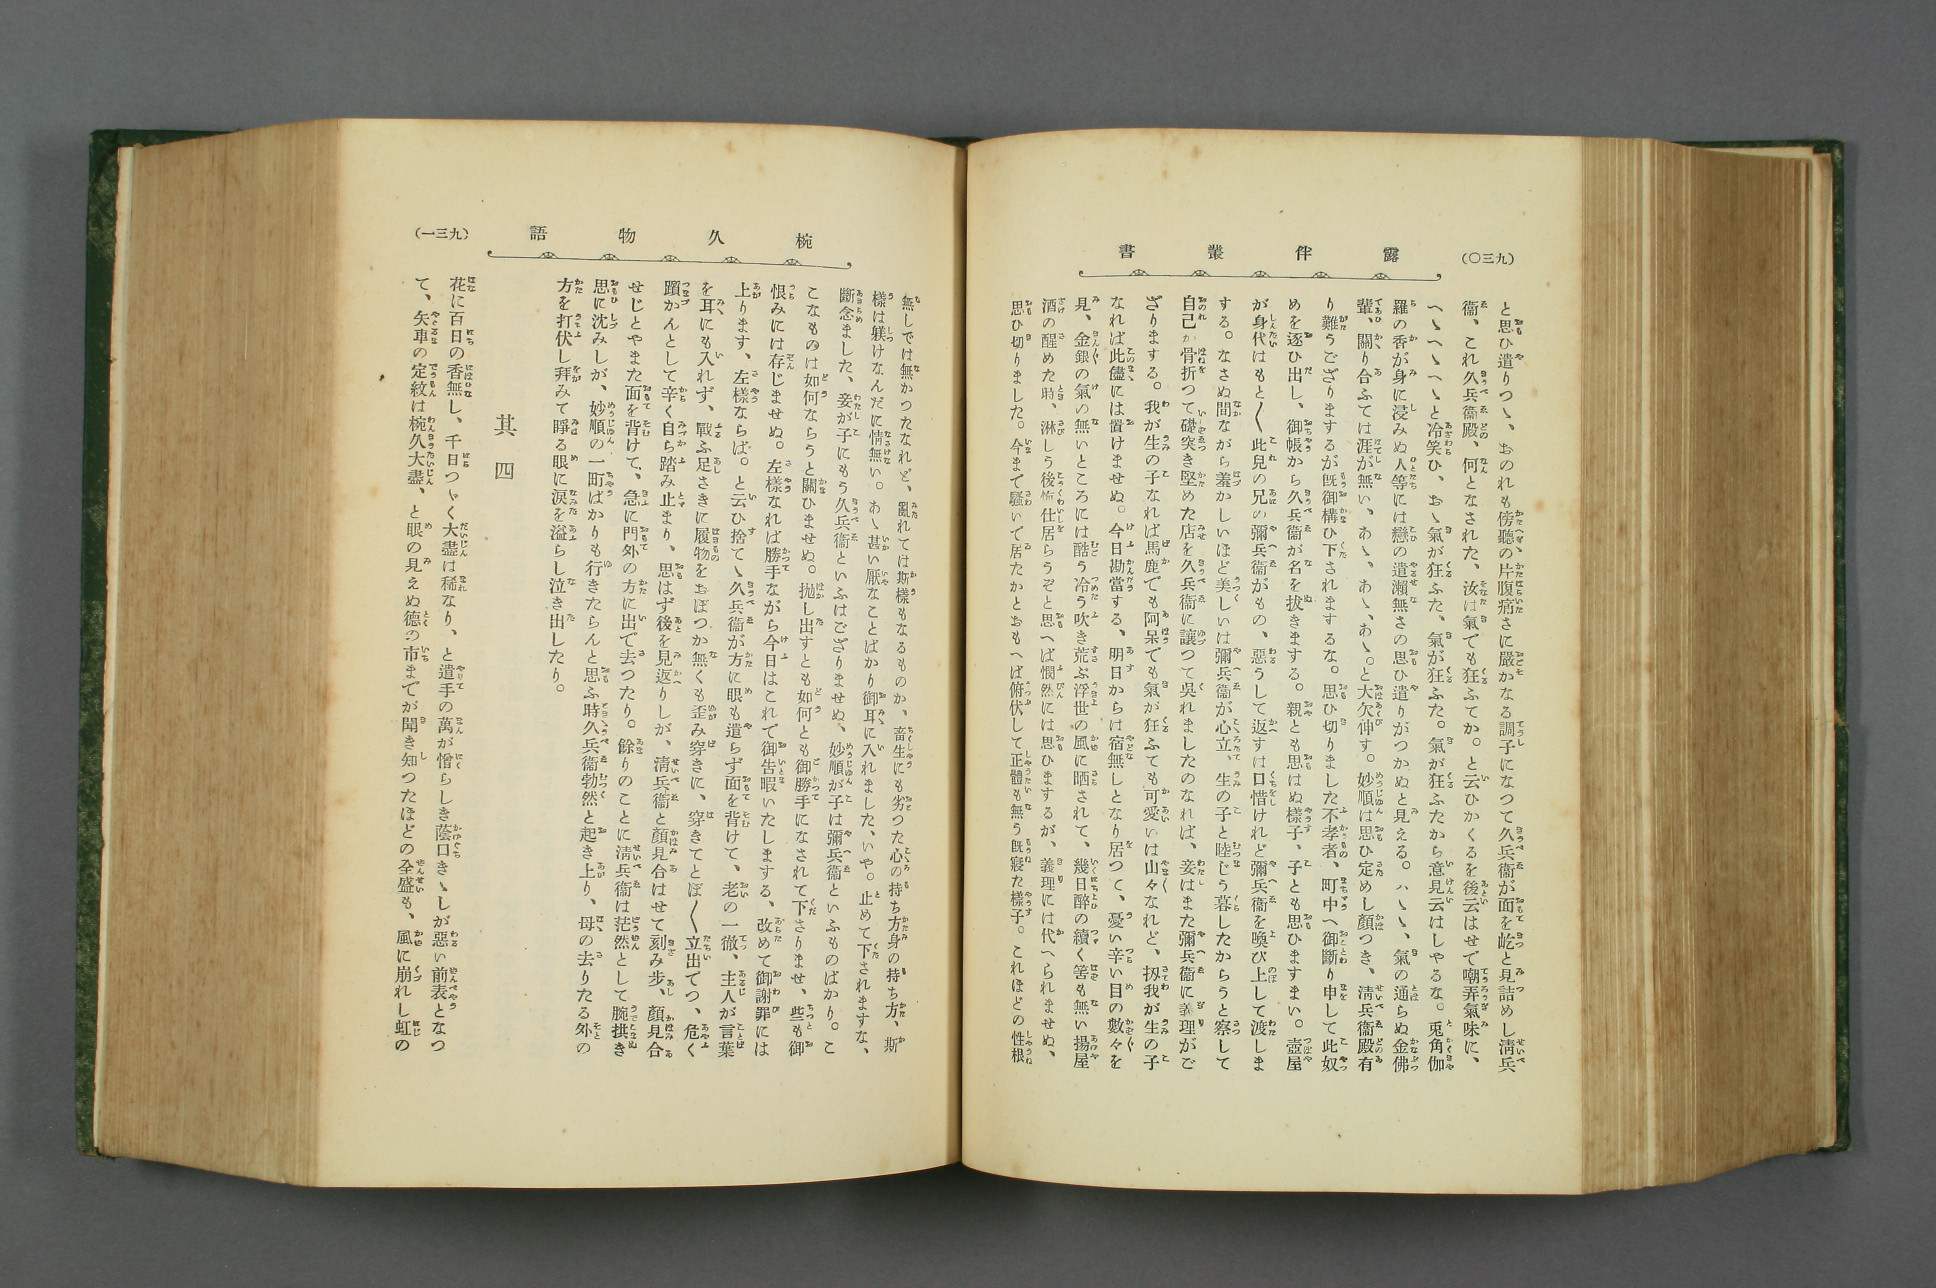 (九三〇)
露伴叢書
と思ひ遣りつゝ、おのれも傍聽の片腹痛さに嚴かなる調子になつて久兵衞が面を屹と見詰めし淸兵
衞、これ久兵衞殿、何となされた、汝は氣でも狂ふてか。と云ひかくるを後云はせで嘲弄氣味に、
へゝへゝへゝと冷笑ひ、おゝ氣が狂ふた、氣が狂ふた。氣が狂ふたから意見云はしやるな。兎角伽
羅の香が身に浸みぬ人等には戀の遣瀨無さの思ひ遣りがつかぬと見える。ハゝゝ、氣の通らぬ金佛
輩、關り合ふては涯が無い、あゝ、あゝ、あゝ。と大欠伸す。妙順は思ひ定めし顏つき、淸兵衞殿有
り難うござりまするが既御構ひ下されまするな。思ひ切りました不孝者、町中へ御斷り申して此奴
めを逐ひ出し、御帳から久兵衞が名を拔きまする。親とも思はぬ樣子、子とも思ひますまい。壺屋
が身代はもと〳〵此兒の兄の彌兵衞がもの、惡うして返すは口惜けれど彌兵衞を喚び上して渡しま
する。なさぬ間ながら羞かしいほど美しいは彌兵衞が心立、生の子と睦じう暮したからうと察して
自己が骨折つて礎突き堅めた店を久兵衞に讓つて吳れましたのなれば、妾はまた彌兵衞に義理がご
ざりまする。我が生の子なれば馬鹿でも阿呆でも氣が狂ふても可愛いは山々なれど、扨我が生の子
なれば此儘には置けませぬ。今日勘當する、明日からは宿無しとなり居つて、憂い辛い目の數々を
見、金銀の氣の無いところには酷う冷う吹き荒ぶ浮世の風に晒されて、幾日醉の續く筈も無い揚屋
酒の醒めた時、淋しう後悔仕居らうぞと思へば憫然には思ひまするが、義理には代へられませぬ、
思ひ切りました。今まで騷いで居たかとおもへば俯伏して正體も無う既寢た樣子。これほどの性根
椀久物語
(九三一)
無しでは無かつたなれど、亂れては斯樣もなるものか、畜生にも劣つた心の持ち方身の持ち方、斯
樣は躾けなんだに情無い。あゝ甚い厭なことばかり御耳に入れました、いや。止めて下されますな、
斷念ました、妾が子にもう久兵衞といふはござりませぬ、妙順が子は彌兵衞といふものばかり。こ
こなものは如何ならうと關ひませぬ。抛し出すとも如何とも御勝手になされて下さりませ、些も御
恨みには存じませぬ。左樣なれば勝手ながら今日はこれで御告暇いたしまする、改めて御謝罪には
上ります、左樣ならば。と云ひ捨てゝ久兵衞が方に眼も遣らず面を背けて、老の一徹、主人が言葉
を耳にも入れず、戰ふ足さきに履物をおぼつか無くも歪み穿きに、穿きてとぼ〳〵立出でつ、危く
躓かんとして辛く自ら踏み止まり、思はず後を見返りしが、淸兵衞と顏見合はせて刻み步、顏見合
せじとやまた面を背けて、急に門外の方に出で去つたり。餘りのことに淸兵衞は茫然として腕拱き
思に沈みしが、妙順の一町ばかりも行きたらんと思ふ時久兵衞勃然と起き上り、母の去りたる外の
方を打伏し拜みて睜る眼に淚を溢らし泣き出したり。
其四
花に百日の香無し、千日つゞく大盡は稀なり、と遣手の萬が憎らしき蔭口きゝしが惡い前表となつ
て、矢車の定紋は椀久大盡、と眼の見えぬ德の市までが聞き知つたほどの全盛も、風に崩れし虹の